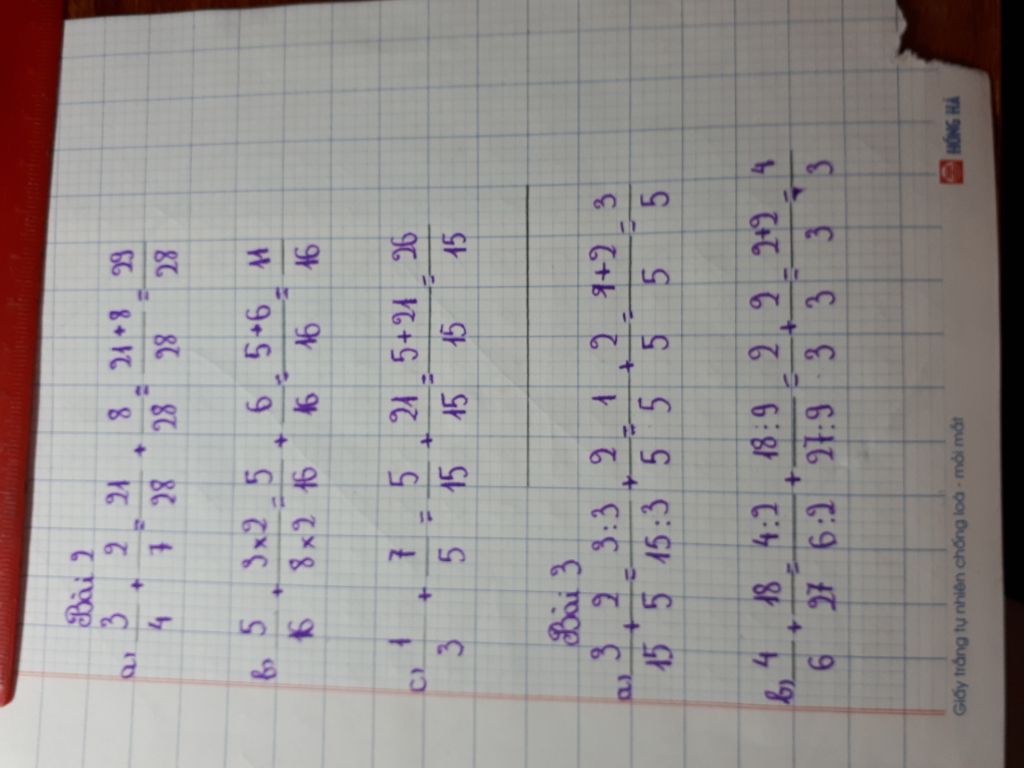 Bài 2
a) 3/4 + 2/7 = 21/28 + 8/28 = 21+8/28 = 29/28
b) 5/16 + 3×2/8×2 = 5/16 + 6/16 = 5+6/16 = 11/16
c) 1/3 + 7/5 = 5/15 + 21/15 = 5+21/15 = 26/15
Bài 3
a) 3/15 + 2/5 = 3:3/15:3 + 2/5 = 1/5 + 2/5 = 1+2/5 = 3/5
b) 4/6 + 18/27 = 4:2/6:2 + 18:9/27:9 = 2/3 + 2/3 = 2+2/3 = 4/3
Giấy trắng tự nhiên chống loá - mỏi mắt
HỒNG HÀ